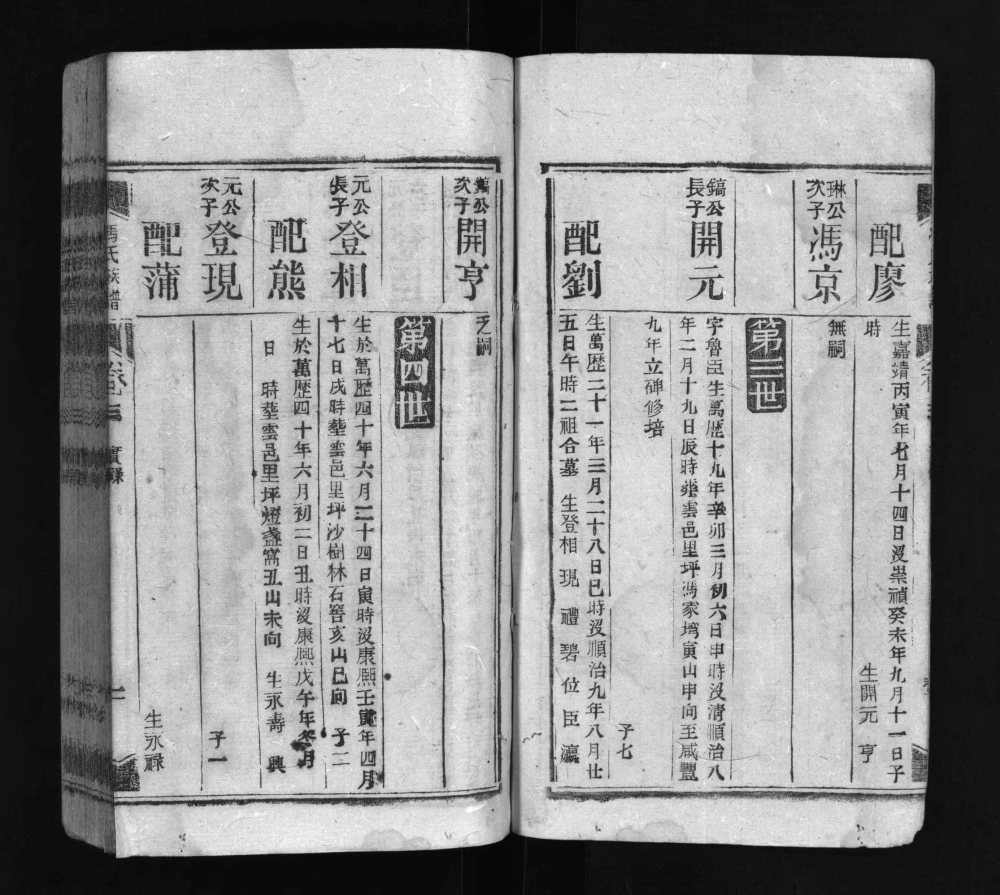 配廖
生嘉靖丙寅年七月十四日沒崇禎癸未年九月十一日子
時
生開元 亨
琳公次子馮京
無嗣
第三世
鎬公長子開元
字魯臣生萬歷十九年辛卯三月初六日申時沒清順治八
年二月十九日辰時塟雲邑里坪馮家塆寅山申向至咸豐
九年立碑修培
子七
配劉
生萬歷二十一年三月二十八日巳時沒順治九年八月廿
五日午時二祖合墓 生登相 現 禮 碧 位 臣 瀛
鎬公次子開亨
乏嗣
第四世
元公長子登相
生於萬歷四十年六月二十四日寅時沒康熙壬寅年四月
十七日戌時塟雲邑里坪沙樹林石窖亥山巳向 子二
配熊
生於萬歷四十年六月初二日丑時沒康熙戊午年冬月
日 時塟雲邑里坪燈盞窩丑山未向 生永壽 興
元公次子登現
子一
配蒲
生永祿
馮氏族譜
卷三 實錄